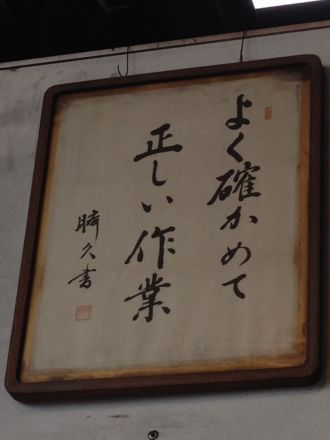 よく確かめて
正しい作業
勝久書